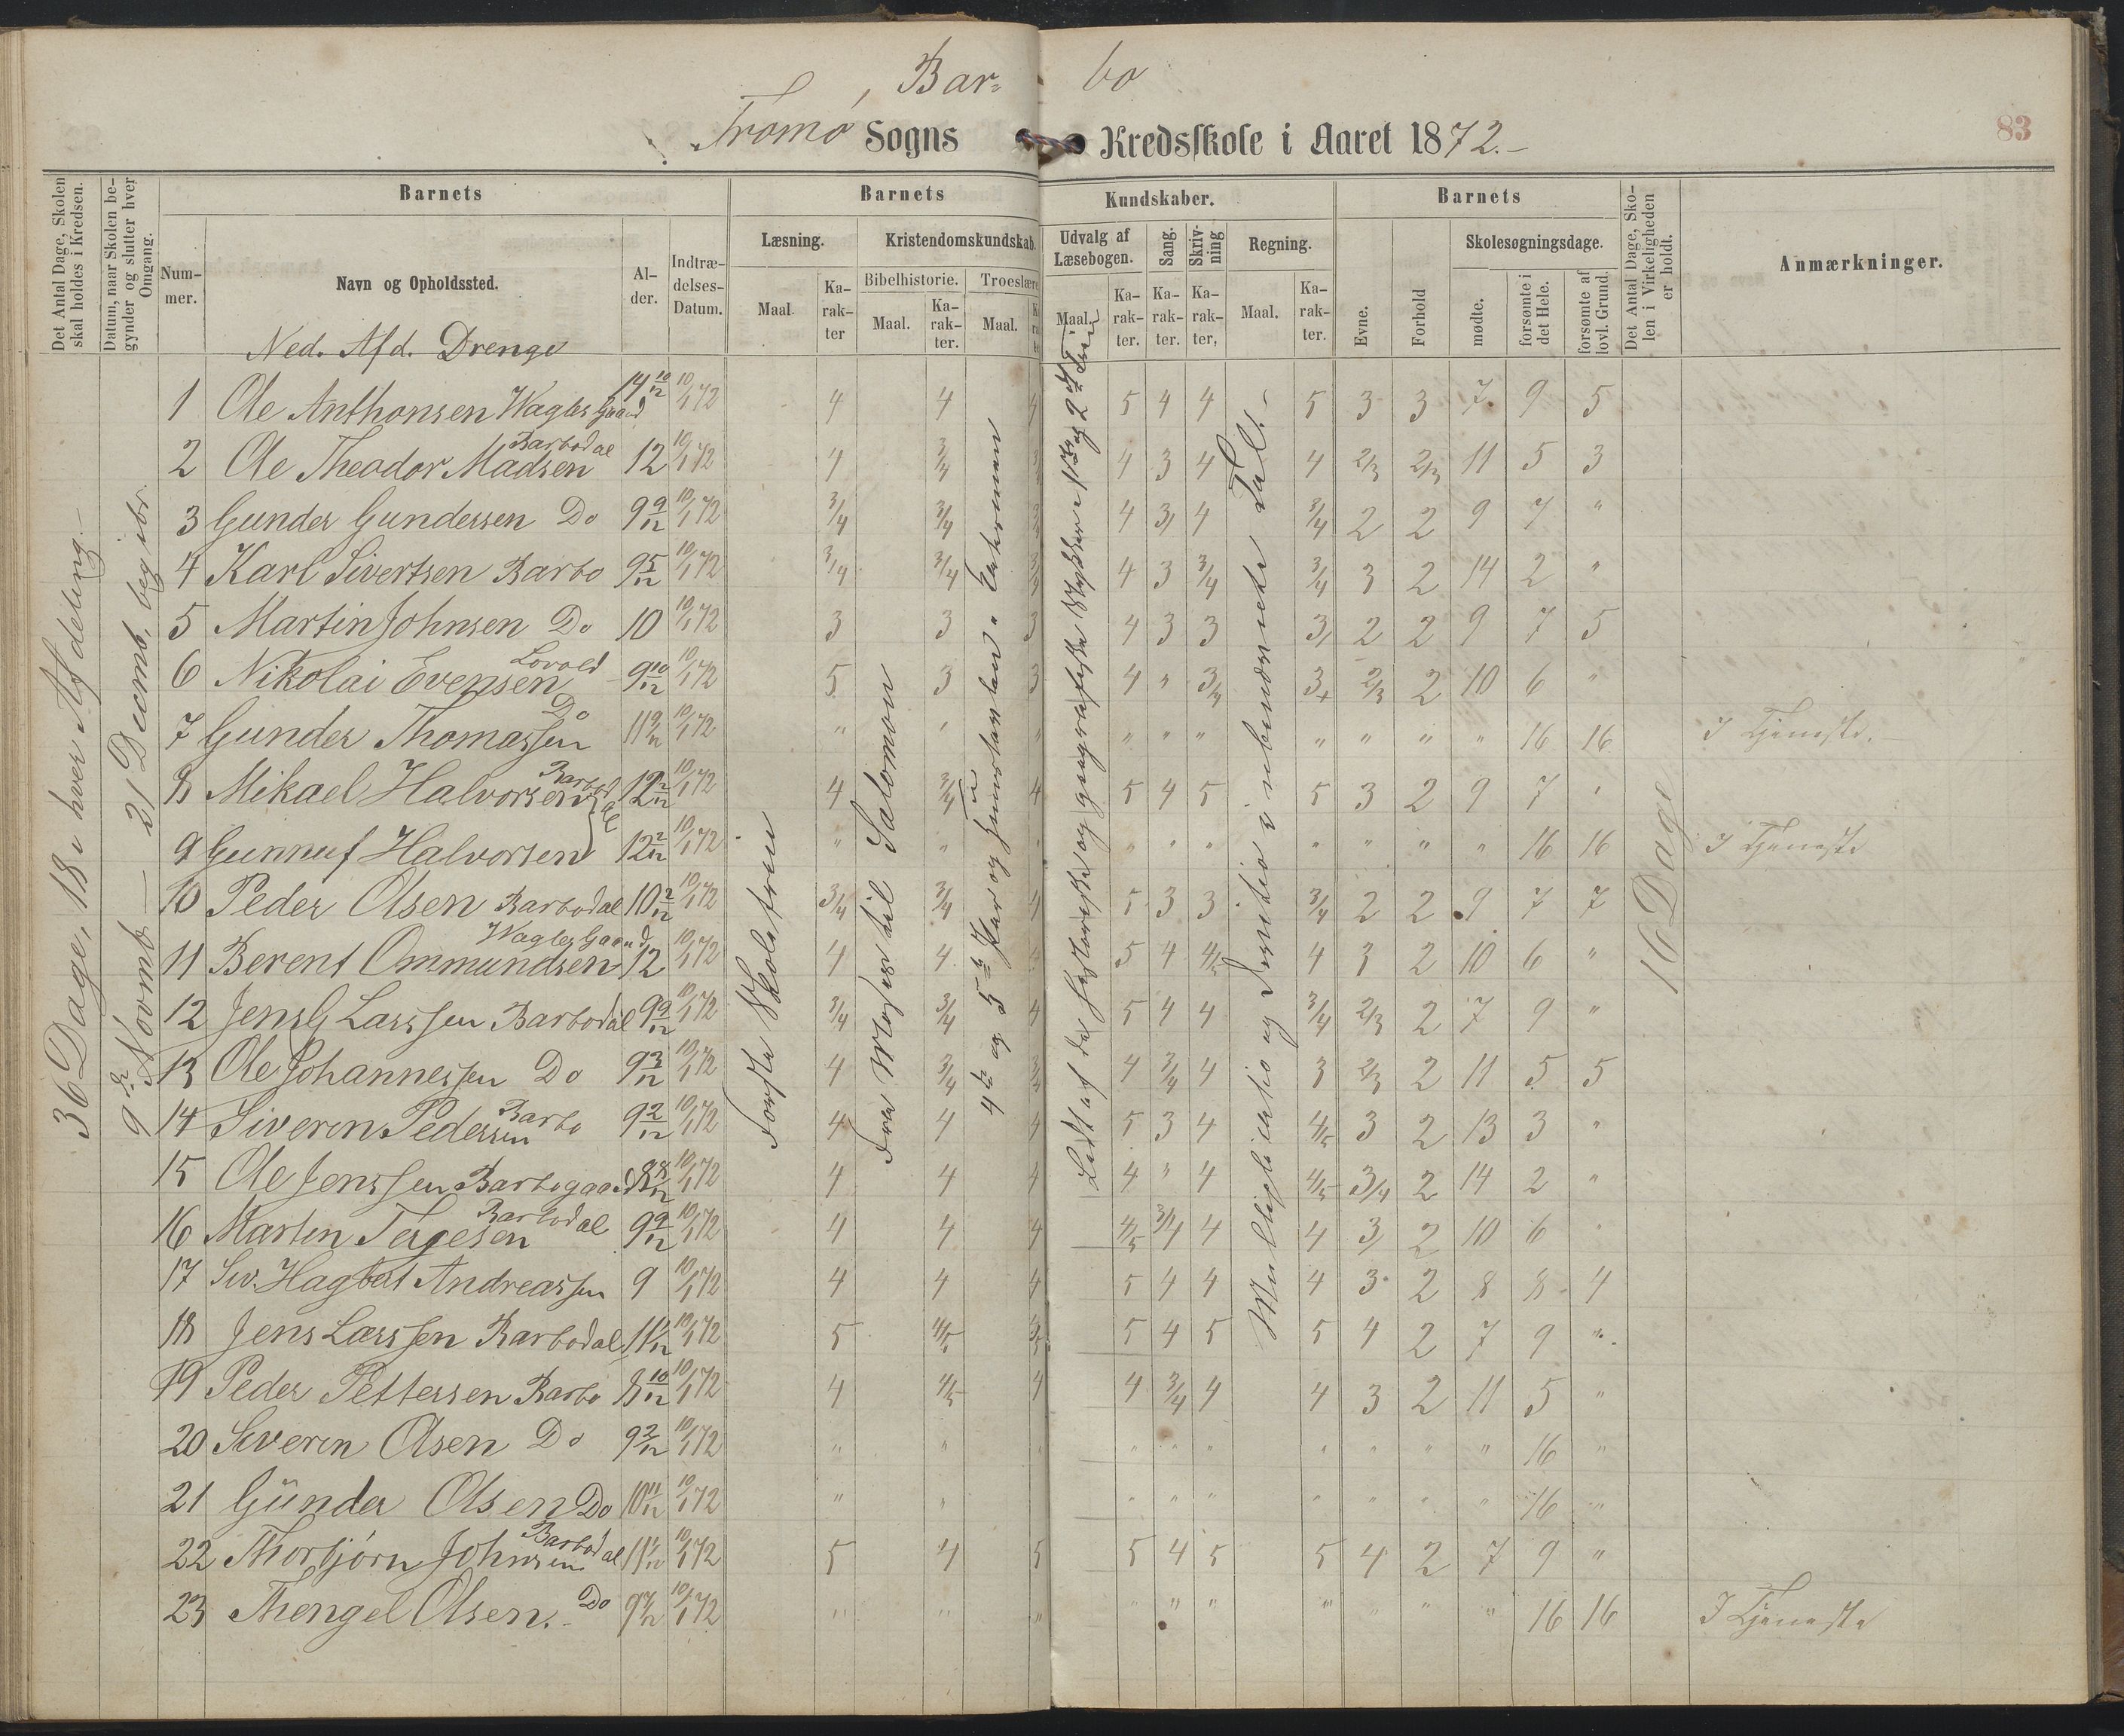 Bar= bo
Tromø Sogns Kredsskole i Aaret 1872.-
83
Det Antal Dage, Skolen skal holdes i Kredsen.
Datum, naar Skolen begynder og slutter hver Omgang.
Barnets
Barnets Kundskaber.
Barnets
Det Antal Dage, Skolen i Virkeligheden er holdt.
Anmærkninger.
Nummer.
Navn og Opholdssted.
Alder.
Indtrædelses-Datum.
Læsning.
Kristendomskundskab.
Udvalg af Læsebogen.
Sang.
Skrivning
Regning.
Evne.
Forhold
Skolesøgningsdage.
Bibelhistorie.
Troeslære
Maal. Karakter
Maal. Karakter.
Maal.
Maal. Karakter. Karakter. Karakter,
Maal. Karakter.
mødte.
forsømte i det Hele.
forsømte af lovl. Grund.
Ned. Afd. Drenge
36 Dage, 18 i hver Afdeling.-
9de Novemb - 21 Decemb.
Første Skoletrin
Fra Moses til Salomon
4de og 5te Part og
Multiplicatio og Divitio i ubenævnte Tal.-
16 Dage
1 Ole Anthonsen Wagles Gaard 14 10/12 10/1 72 4 4 4 5 4 4 5 3 3 7 9 5
2 Ole Theodor Madsen Barbodal 12 10/1 72 4 3/4 3/4 4 3 4 4 2/3 2/3 11 5 3
3 Gunder Gundersen Do 9 9/12 10/1 72 3/4 3/4 3/4 4 3/ 4 3/4 2 2 9 7 "
4 Karl Sivertsen Barbo 9 5/12 10/1 72 3/4 3/4 3/4 4 3 3/4 3/4 3 2 14 2 "
5 Martin Johnsen Do 10 10/1 72 3 3 3 4 3 3 3/ 2 2 9 7 5
6 Nikolai Evensen Lovold 9 10/12 10/1 72 5 3 3 4 " 3/4 3+ 2/3 2 10 6 "
7 Gunder Thomassen Do 11 9/12 10/1 72 " " " " " " " " " " 16 16 I Tjeneste.-
8 Mikael Halvorsen Barbodal 12 2/12 10/1 72 4 3/4 4 5 4 5 5 3 2 9 7 "
9 Gunnuf Halvorsen 12 2/12 10/1 72 " " " " " " " " " " 16 16 I Tjeneste
10 Peder Olsen Barbodal 10 2/12 10/1 72 3/4 3/4 4 5 3 3 3/4 2 2 9 7 7
11 Berent Ommundsen Wagles Gaard 12 10/1 72 4 4 4 5 4 4/5 4 3 2 10 6 "
12 Jens G Larssen Barbodal 9 9/12 10/1 72 3/4 3/4 4 5 4 4 3/4 2/3 2 7 9 "
13 Ole Johannessen Do 9 3/12 10/1 72 4 3/4 3/4 4 3/4 4 3 2/3 2 11 5 5
14 Siveren Pedersen Barbo 9 2/12 10/1 72 4 4 4 5 3 4 4/5 3 2 13 3 "
15 Ole Jenssen Barbogaard 8 8/12 10/1 72 4 4 4 4 " 4 4/5 3/4 2 14 2 "
16 Marten Terjesen Barbodal 9 9/12 10/1 72 4 4 4 4/5 3/4 4 4 3/ 2 10 6 "
17 Siv. Hagbart Andreassen 9 10/1 72 4 4 4 5 4 4 4 3 2 8 8 4
18 Jens Larssen Barbodal 11 1/12 10/1 72 5 4/5 4/5 5 4 5 5 4 2 7 9 "
19 Peder Pettersen Barbo 8 10/12 10/1 72 4 4/5 4 4 3/4 4 4 3 2 11 5 "
20 Severen Olsen Do 9 2/12 10/1 72 " " " " " " " " " " 16 "
21 Günder Olsen Do 10 11/12 10/1 72 " " " " " " " " " 16 "
22 Thorbjørn Johnsen Barbodal 11 1/12 10/1 72 5 4 5 5 4 5 5 4 2 7 9 "
23 Thengel Olsen. Do 9 7/12 10/1 72 " " " " " " " " " " 16 16 I Tjeneste